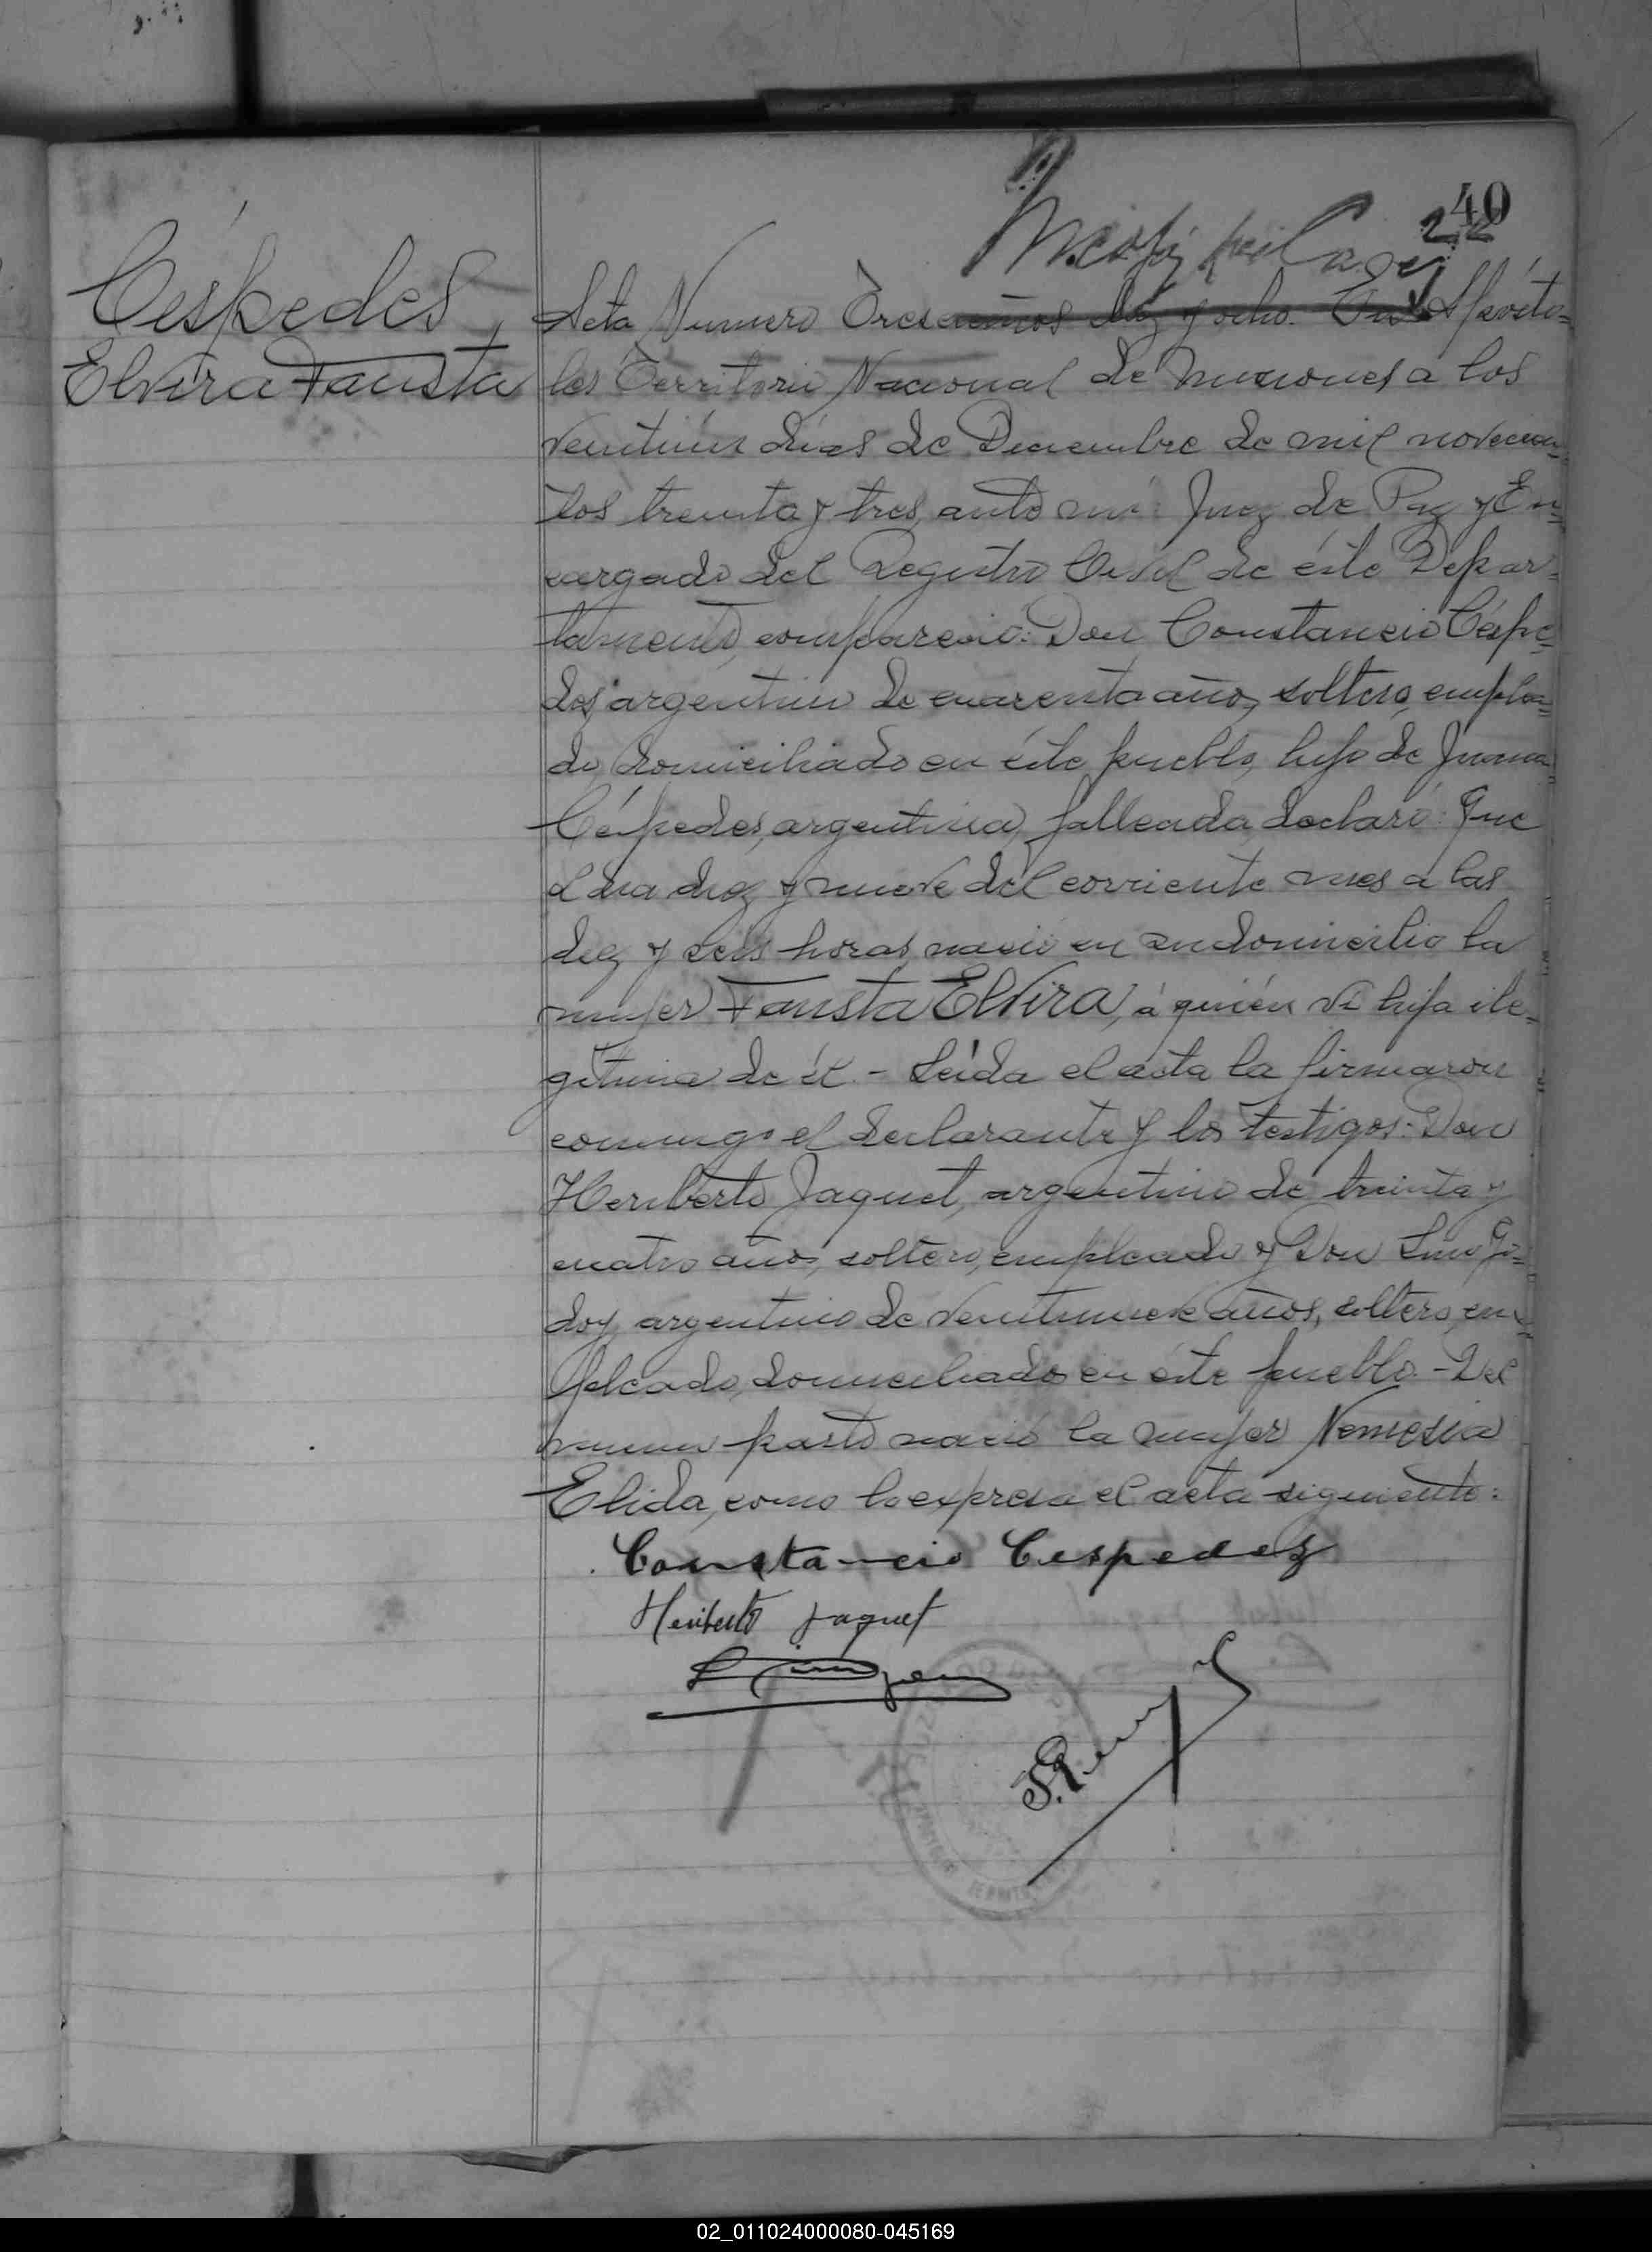 40
22
Céspedes,
Elvira Fausta
Acta Numero Trescientos diez y ocho. En Apósto=
les Territorio Nacional de Misiones a los
veintiún días de Diciembre de mil novecien=
tos treinta y tres, ante mí: Juez de Paz y En=
cargado del Registro Civil de éste Depar=
tamento, compareció: Don Constancio Céspe=
des, argentino de cuarenta años, soltero, emplea=
do, domiciliado en éste pueblo, hijo de Juana
Céspedes, argentina, fallecida, declaró: Que
el día diez y nueve del corriente mes a las
diez y seis horas, nació en su domicilio la
mujer Fausta Elvira, á quién vi hija ile=
gítima de él.- Leída el acta la firmaron
conmigo el declarante y los testigos: Don
Heriberto Jaquet, argentino de treinta y
cuatro años, soltero, empleado y Don Lino Go=
doy, argentino de veintinueve años, soltero, em=
pleado, domiciliados en éste pueblo.- Del
mismo parto nació la mujer Nemesia
Elida, como lo expresa el acta siguiente:
Constancio Cespedez
Heriberto Jaquet
02_011024000080-045169